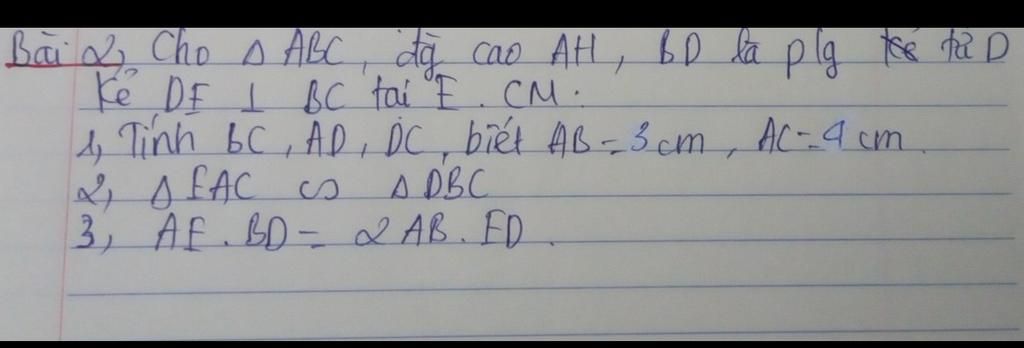 Bài 2, Cho Δ ABC, đg cao AH, BD là plg kẻ từ D
Kẻ DE ⊥ BC tai E. CM:
1, Tính BC, AD, DC, biết AB = 3 cm, AC = 4 cm.
2, Δ EAC ∽ Δ DBC
3, AE . BD = 2 AB . ED.